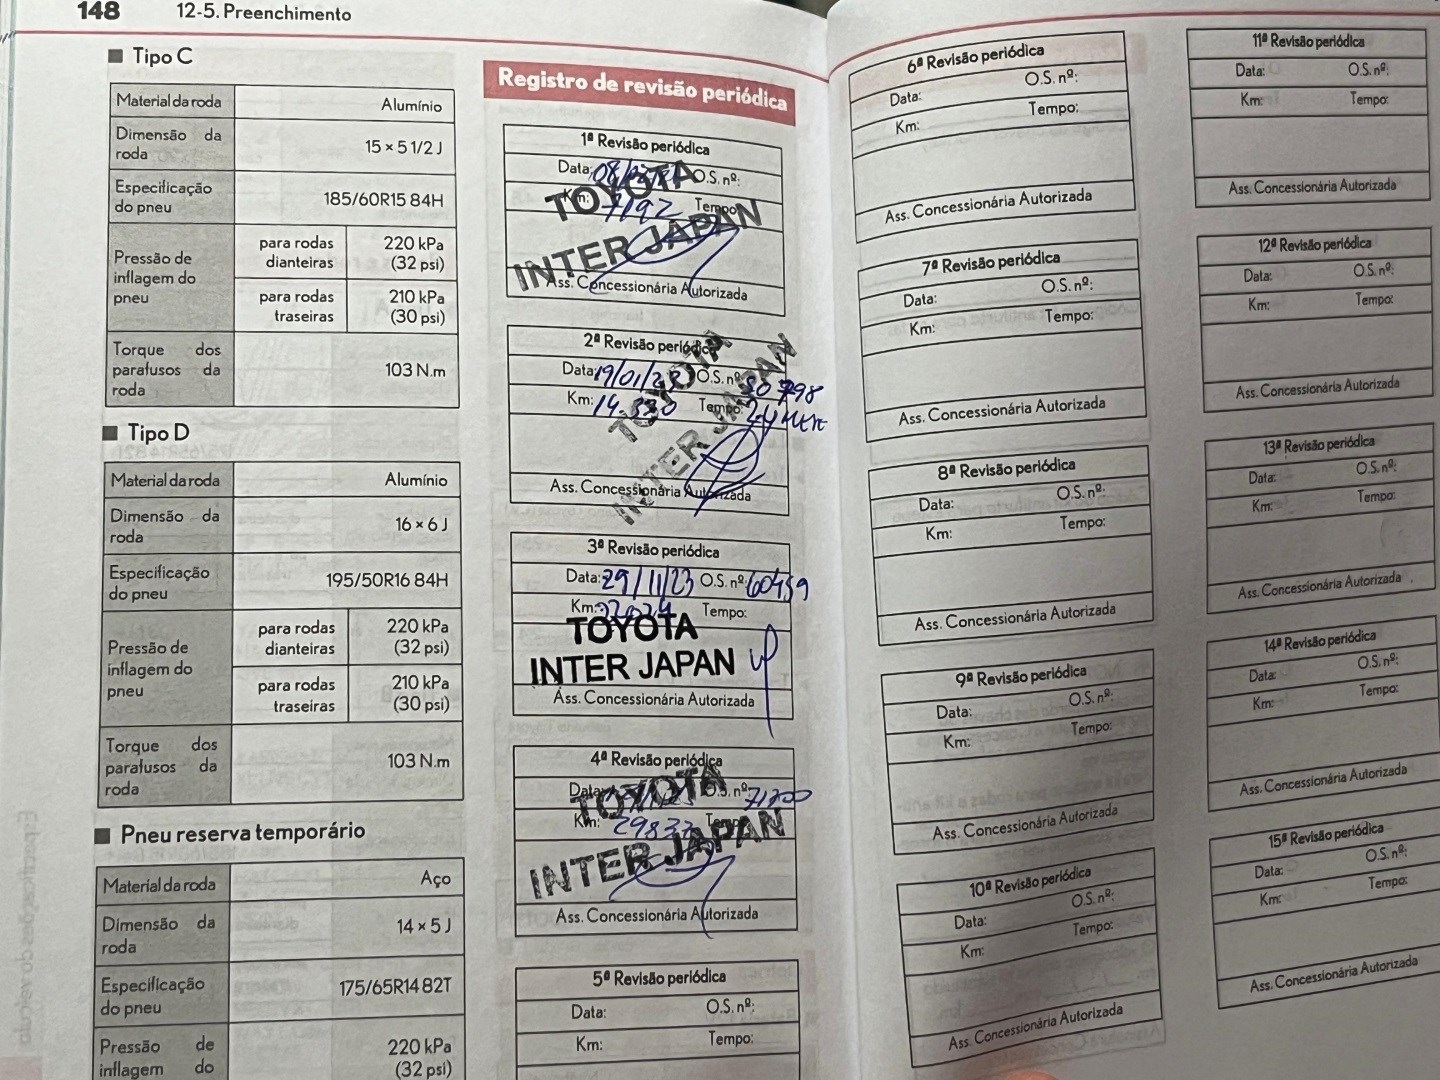 148 12-5. Preenchimento
■ Tipo C
Material da roda Alumínio
Dimensão da roda 15 × 5 1/2 J
Especificação do pneu 185/60R15 84H
Pressão de inflagem do pneu
para rodas dianteiras 220 kPa (32 psi)
para rodas traseiras 210 kPa (30 psi)
Torque dos parafusos da roda 103 N.m
■ Tipo D
Material da roda Alumínio
Dimensão da roda 16 × 6 J
Especificação do pneu 195/50R16 84H
Pressão de inflagem do pneu
para rodas dianteiras 220 kPa (32 psi)
para rodas traseiras 210 kPa (30 psi)
Torque dos parafusos da roda 103 N.m
■ Pneu reserva temporário
Material da roda Aço
Dimensão da roda 14 × 5 J
Especificação do pneu 175/65R14 82T
Pressão de inflagem do 220 kPa (32 psi)
Registro de revisão periódica
1ª Revisão periódica
Data: O.S. nº:
Km: 7192 Tempo:
TOYOTA
INTER JAPAN
Ass. Concessionária Autorizada
2ª Revisão periódica
Data: 19/01/23 O.S. nº: 50798
Km: 14.330 Tempo: 24
TOYOTA
INTER JAPAN
Ass. Concessionária Autorizada
3ª Revisão periódica
Data: 29/11/23 O.S. nº: 60459
Km: Tempo:
TOYOTA
INTER JAPAN
Ass. Concessionária Autorizada
4ª Revisão periódica
Data: O.S. nº: 71300
Km: 29837 Tempo:
TOYOTA
INTER JAPAN
Ass. Concessionária Autorizada
5ª Revisão periódica
Data: O.S. nº:
Km: Tempo:
6ª Revisão periódica
Data: O.S. nº:
Km: Tempo:
Ass. Concessionária Autorizada
7ª Revisão periódica
Data: O.S. nº:
Km: Tempo:
Ass. Concessionária Autorizada
8ª Revisão periódica
Data: O.S. nº:
Km: Tempo:
Ass. Concessionária Autorizada
9ª Revisão periódica
Data: O.S. nº:
Km: Tempo:
Ass. Concessionária Autorizada
10ª Revisão periódica
Data: O.S. nº:
Km: Tempo:
Ass. Concessionária Autorizada
11ª Revisão periódica
Data: O.S. nº:
Km: Tempo:
Ass. Concessionária Autorizada
12ª Revisão periódica
Data: O.S. nº:
Km: Tempo:
Ass. Concessionária Autorizada
13ª Revisão periódica
Data: O.S. nº:
Km: Tempo:
Ass. Concessionária Autorizada
14ª Revisão periódica
Data: O.S. nº:
Km: Tempo:
Ass. Concessionária Autorizada
15ª Revisão periódica
Data: O.S. nº:
Km: Tempo:
Ass. Concessionária Autorizada